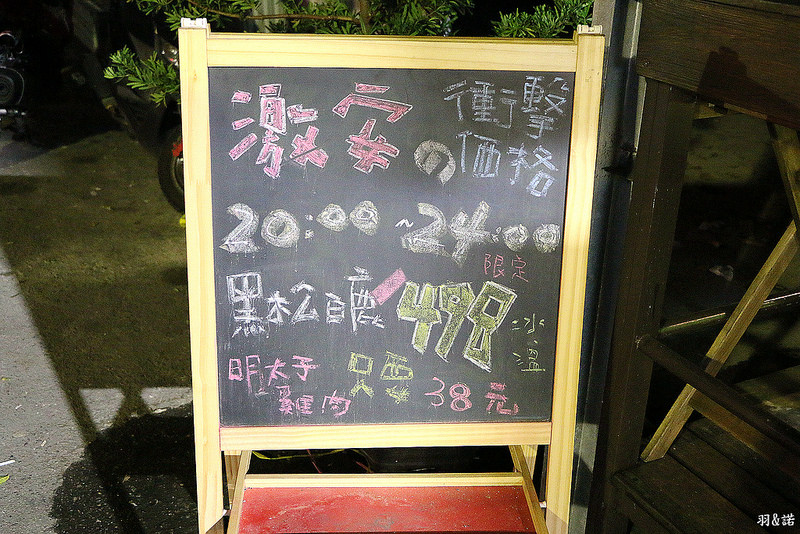 激安の衝撃価格
20:00~24:00
限定
黑松白鹿 498 冰、溫
明太子雞肉 只要 38元
羽&諾